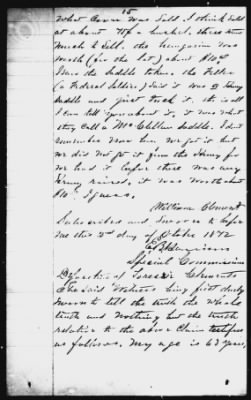 15
What Corn was Sold. I think Sold
at about 75¢ a bushel. there was
Much to Sell. the
worth (for the lot) about $10.
I saw the Saddle taken. the Fellow
(a Federal Soldier,) Said it was
Saddle and just took it. its all
I can tell you about it, it was what
they call a McClellan Saddle. I dont
remember how we got it but
we did not get it from the Army for
we had it before there was any
Army raised, it was worth about
$10. I guess.
William Clement
Subscribed and Sworn to before
me this 2d day of October 1872
Special Commissioner
Deposition of Clements
The Said Witness being first duly
sworn to tell the truth the whole
truth and Nothing but the truth
relative to the above Claim testifies
as follows. My age is 63 years,